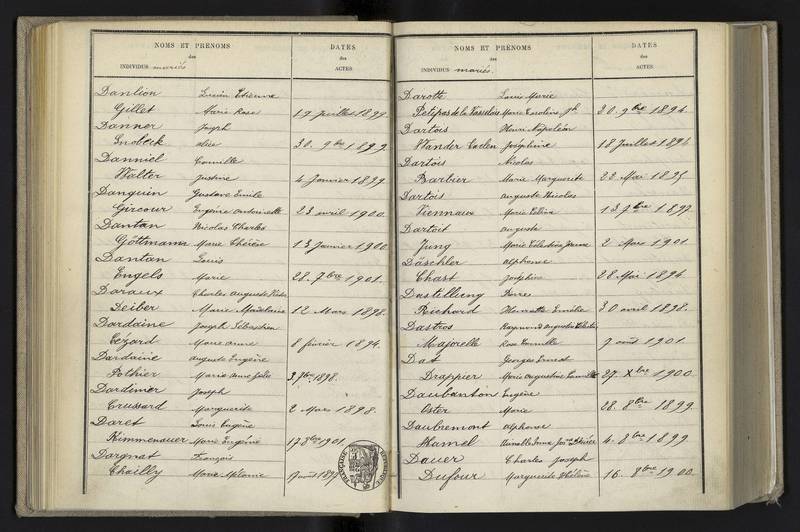 NOMS ET PRÉNOMS DATES
des des
INDIVIDUS mariés ACTES.
Danlion Lucien Etienne
Gillet Marie Rose 19 Juillet 1899
Danner Joseph
Snobeck alice 30. 9bre 1899
Danniel Camille
Walter Justine 4 Janvier 1899.
Danguin Gustave Emile
Gircour Eugénie Antoinette 23 avril 1900.
Dantan Nicolas Charles
Göttmann Marie Thérèse 13 Janvier 1900
Dantan Louis
Engels Marie 28. 7bre 1901.
Daraux Charles Auguste
Deiber Marie Madeleine 12 Mars 1898.
Dardaine Joseph Sébastien
Cézard Marie anne 8 février 1894.
Dardaine auguste Eugène
Pothier Marie Anne 3 7bre 1898.
Dardinier Joseph
Crussard Marguerite 2 Mars 1898.
Daret Louis Eugène
Kimmenauer Marie Eugénie 17 8bre 1901.
Dargnat François
Chailly Marie août 1897
NOMS ET PRÉNOMS DATES
des des
INDIVIDUS mariés. ACTES.
Darotte Louis Marie
Petitpas de la Marie Caroline 30. 9bre 1894.
Dartois Henri Napoléon
Wander Joséphine 18 Juillet 1894
Dartois Nicolas
Barbier Marie Marguerite 28 Mai 1895.
Dartois auguste Nicolas
Viennaux Marie 13 7bre 1897.
Dartoit auguste
Jung Marie Célestine Jeanne 2 Mars 1901.
Däschler alphonse
Chast Joséphine 28 Mai 1894
Dastillung Pierre
Richard Henriette Emélie 30 avril 1898.
Dastros Raymond Augustin
Majorelle Rose Camille 7 août 1901.
Dat Georges Ernest
Drappier Marie Augustine Camille 27. Xbre 1900.
Daubanton Eugène
Oster Marie 28. 8bre 1899.
Daubremont alphonse
Hamel 4. 8bre 1899
Dauer Charles Joseph
Dufour Marguerite Hélène 16. 8bre 1900.